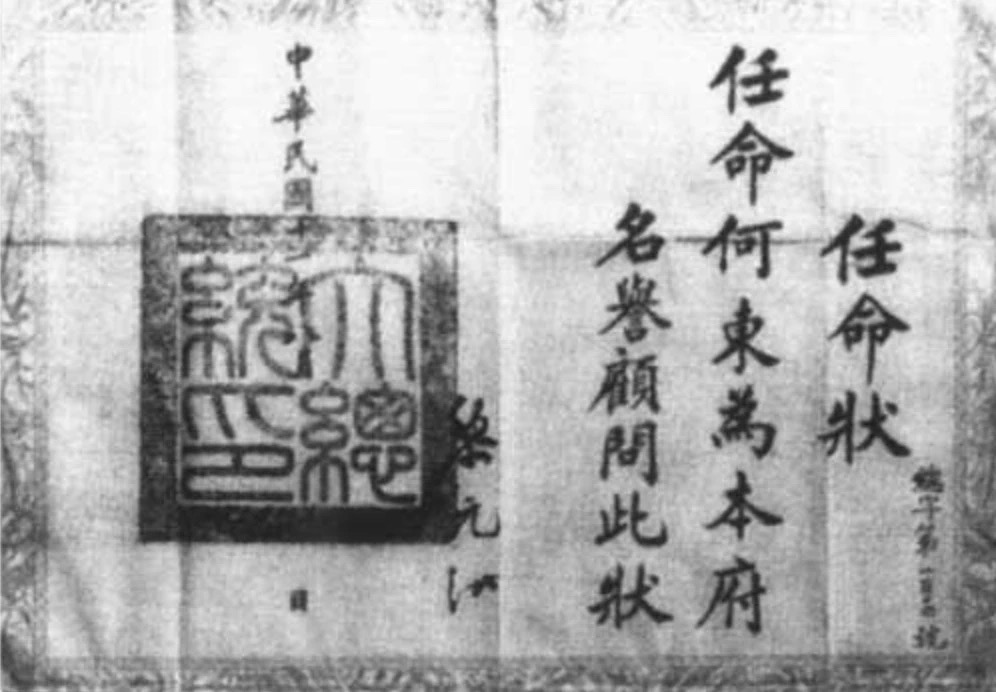 任命狀
總字第一百 號
任命何東為本府
名譽顧問此狀
黎元洪
大總統印
中華民國十 年
日